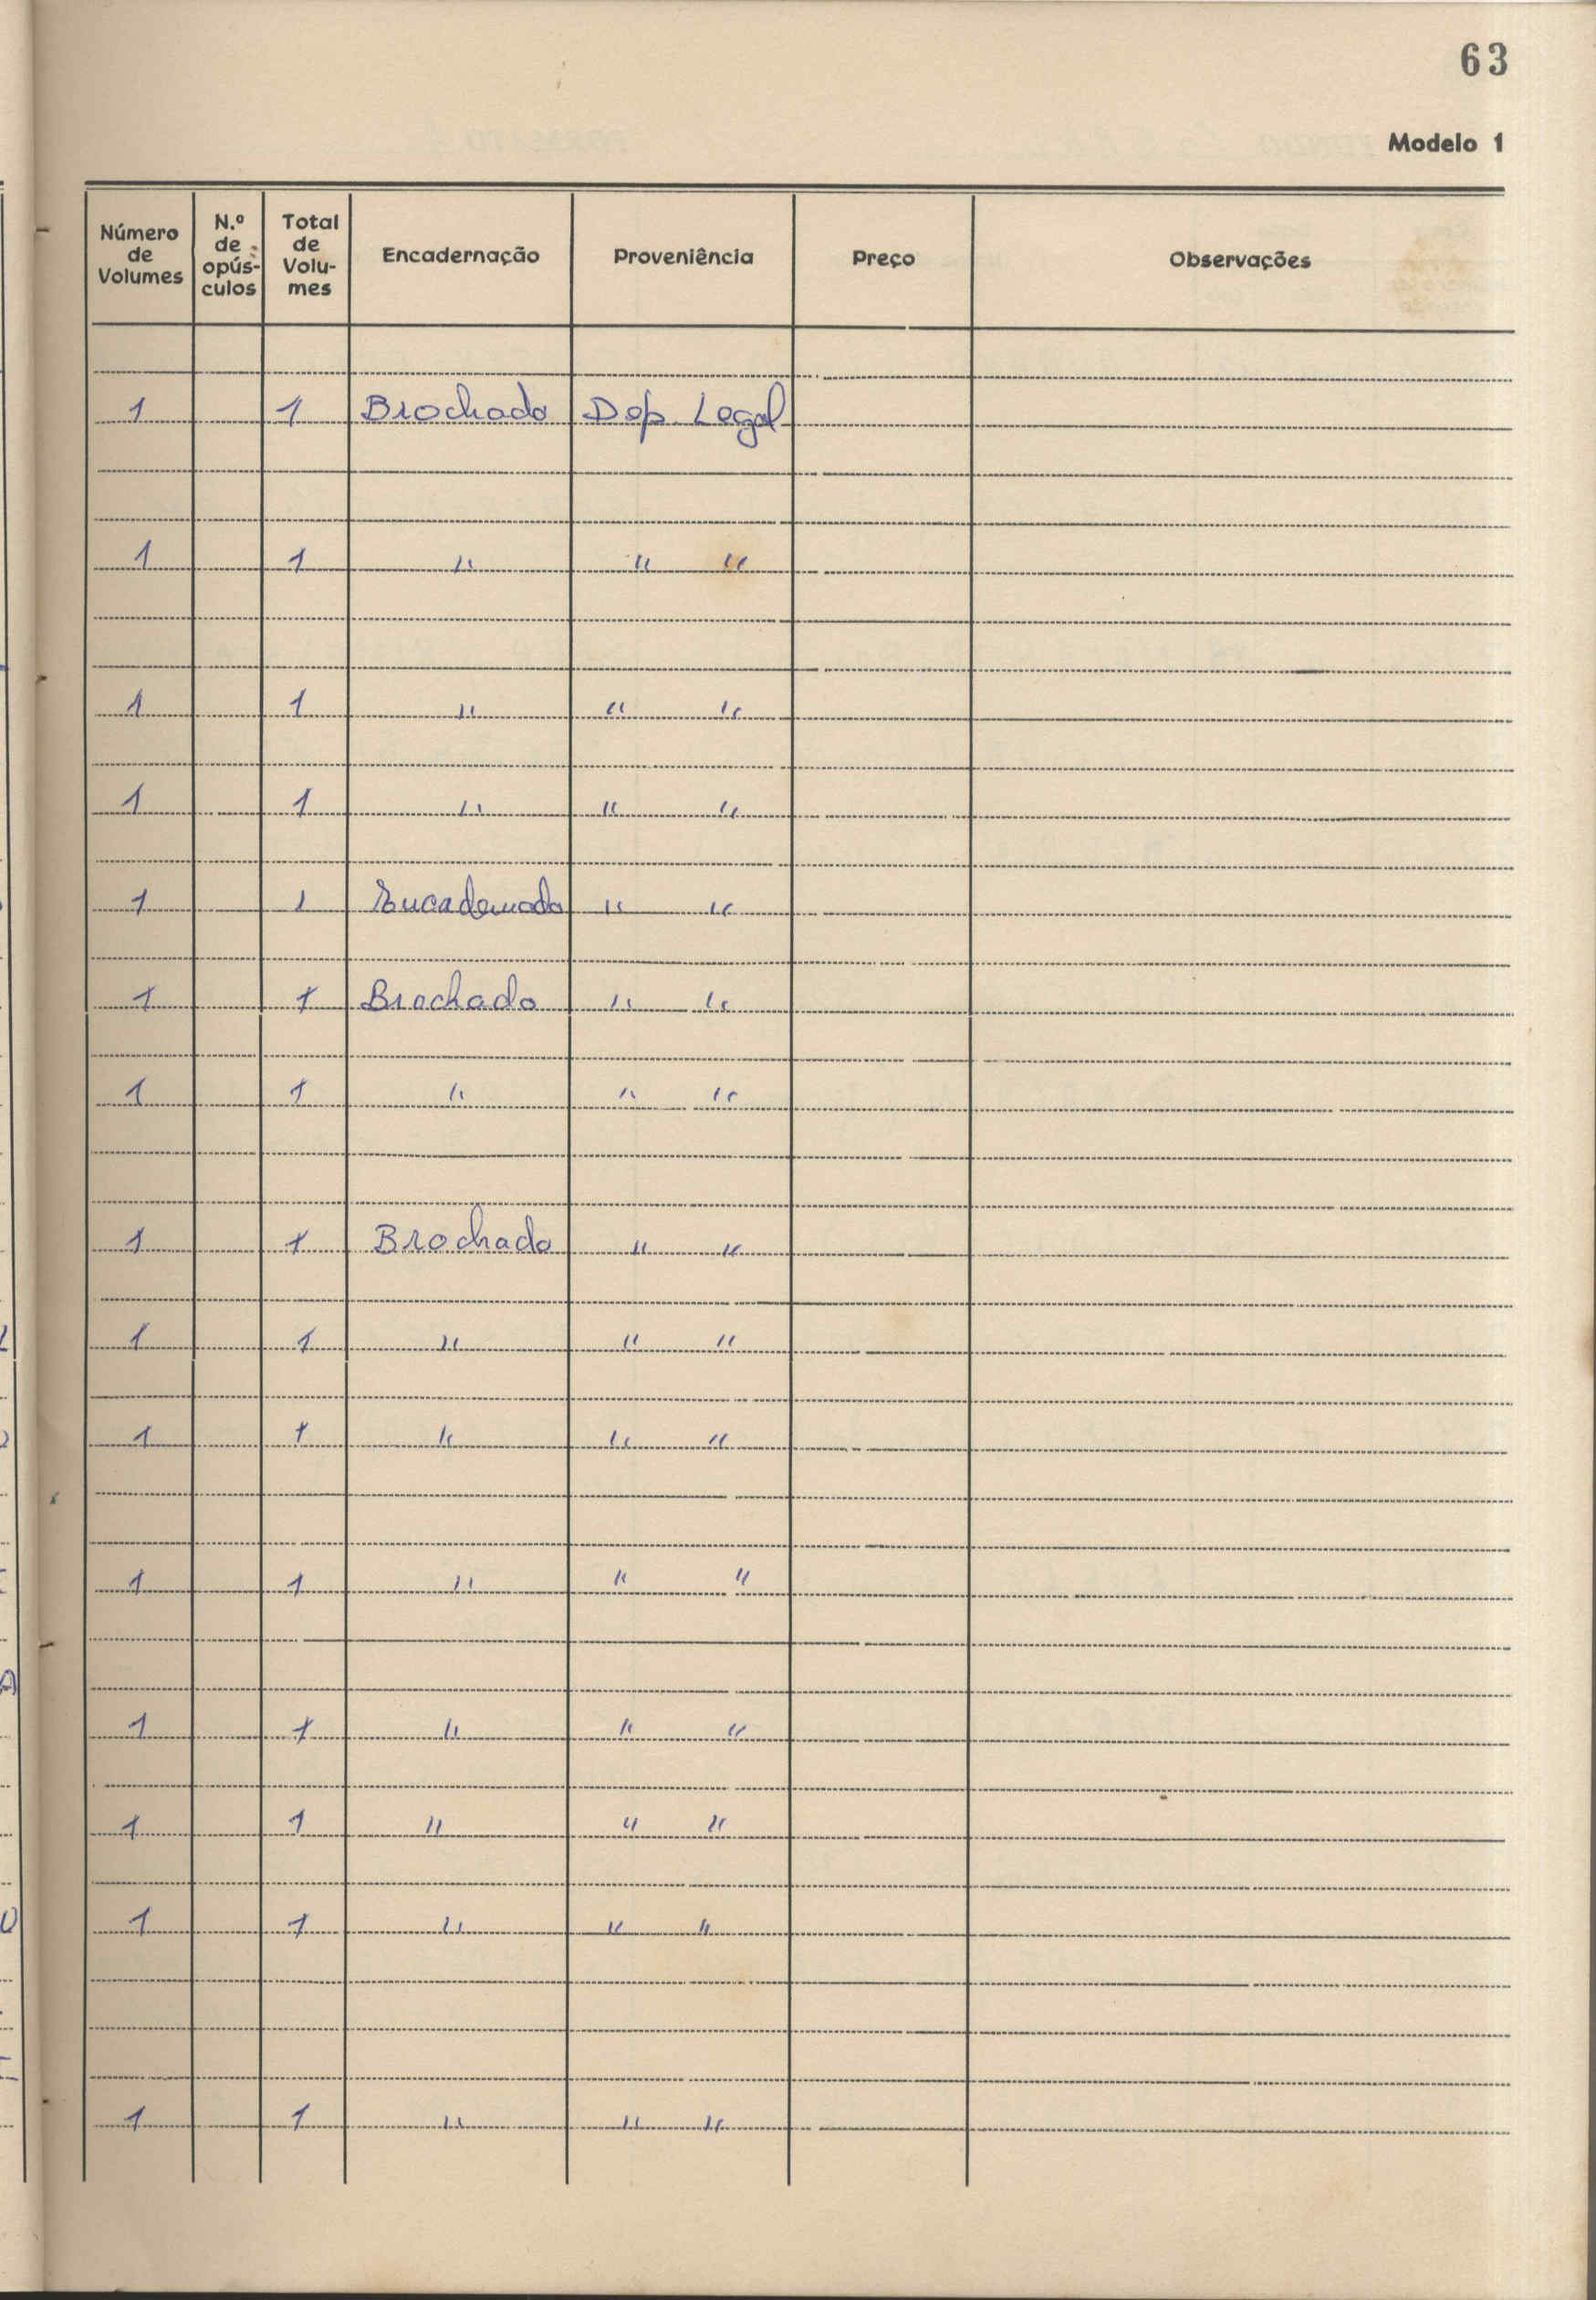 63
Modelo 1
Número de Volumes | N.º de opúsculos | Total de Volumes | Encadernação | Proveniência | Preço | Observações
1 1 Brochado Dep. Legal
1 1 " " "
1 1 " " "
1 1 " " "
1 1 Encadernado " "
1 1 Brochado " "
1 1 " " "
1 1 Brochado " "
1 1 " " "
1 1 " " "
1 1 " " "
1 1 " " "
1 1 " " "
1 1 " " "
1 1 " " "